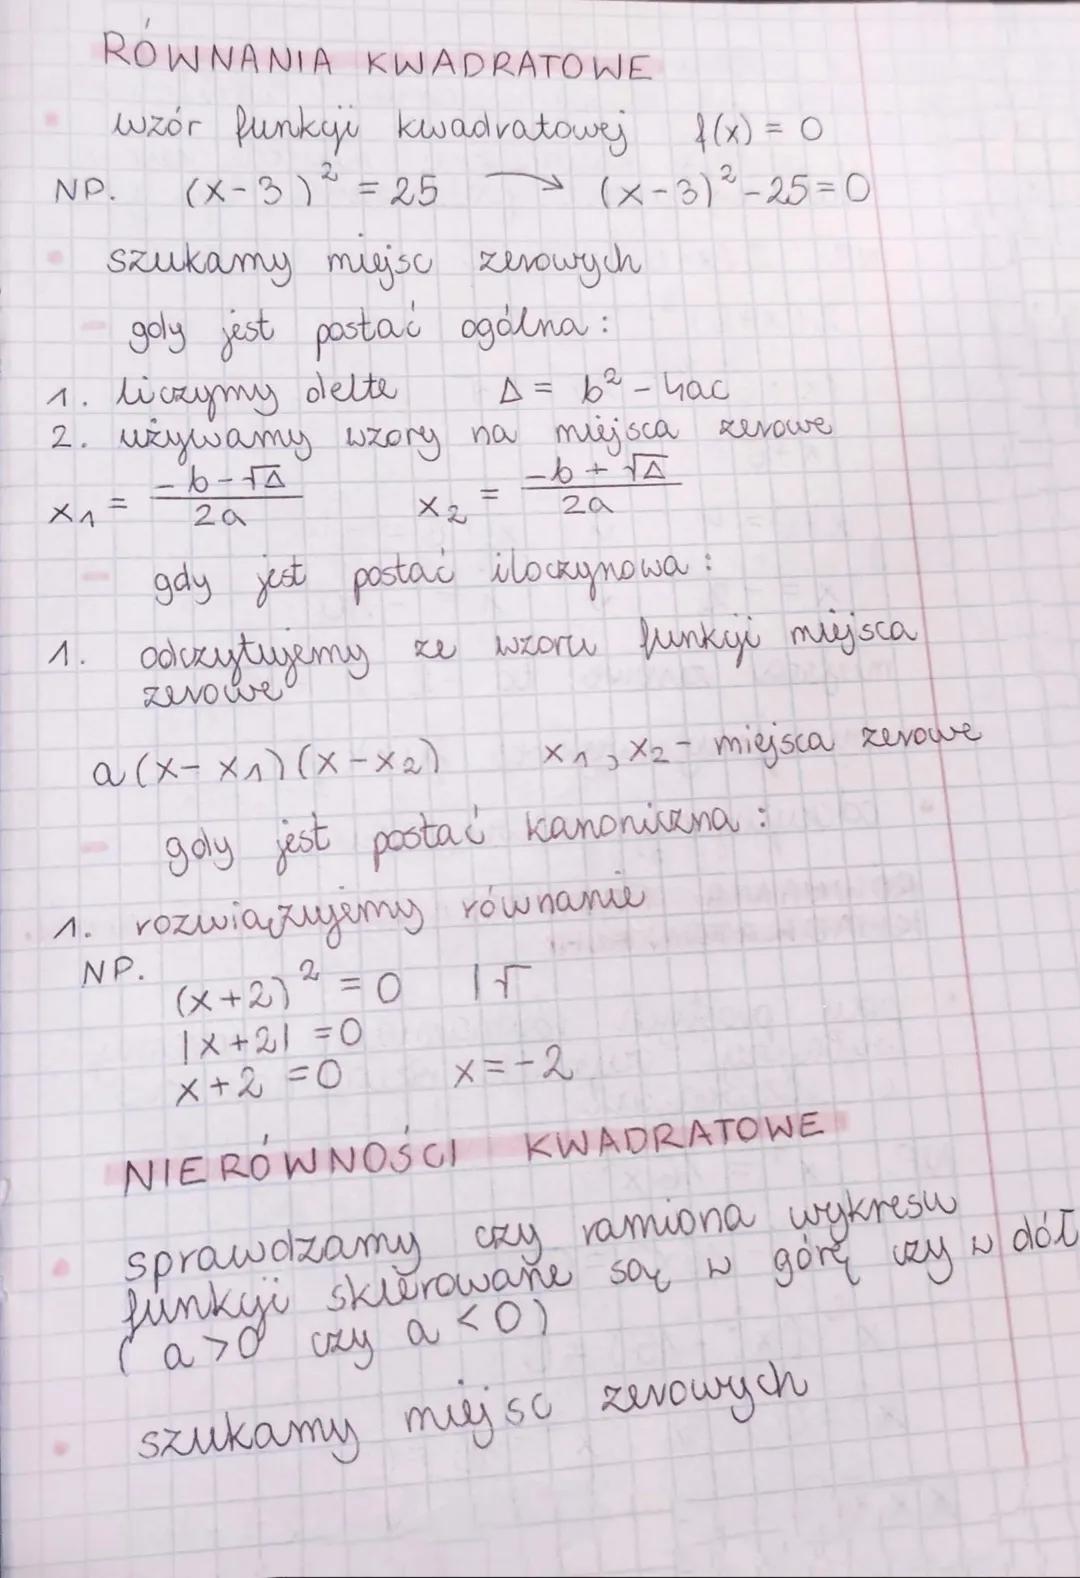 RÓWNANIA KWADRATOWE
wzór funkcji kwadratowej f(x) = 0
NP. (x-3)² = 25 → (x-3)² - 25 = 0
szukamy miejsc zerowych
- gdy jest postać ogólna :
1. liczymy delte Δ = b² - 4ac
2. używamy wzory na miejsca zerowe
x₁ = (-b-√Δ)/2a x₂ = (-b+√Δ)/2a
- gdy jest postać iloczynowa :
1. odczytujemy ze wzoru funkcji miejsca
zerowe
a(x-x₁)(x-x₂) x₁, x₂ - miejsca zerowe
- gdy jest postać kanoniczna :
1. rozwiązujemy równanie
NP.
(x+2)² = 0 |√
|x+2| = 0
x+2 = 0 x = -2
NIERÓWNOŚCI KWADRATOWE
sprawdzamy czy ramiona wykresu
funkcji skierowane są w górę czy w dół
( a>0 czy a<0)
szukamy miejsc zerowych